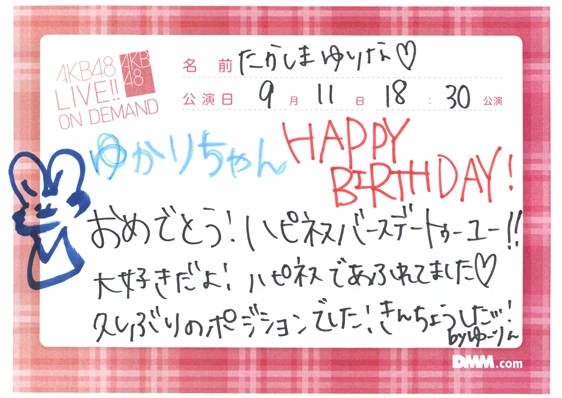 AKB48
LIVE!!
ON DEMAND
AKB
48
名 前 たかしまゆりな♡
公演日 9 月 11 日 18 : 30 公演
ゆかりちゃん HAPPY
BIRTHDAY!
おめでとう! ハピネスバースデートゥーユー!!
大好きだよ! ハピネスであふれてました♡
久しぶりのポジションでした! きんちょうしたッ!
byゆーりん
DMM.com